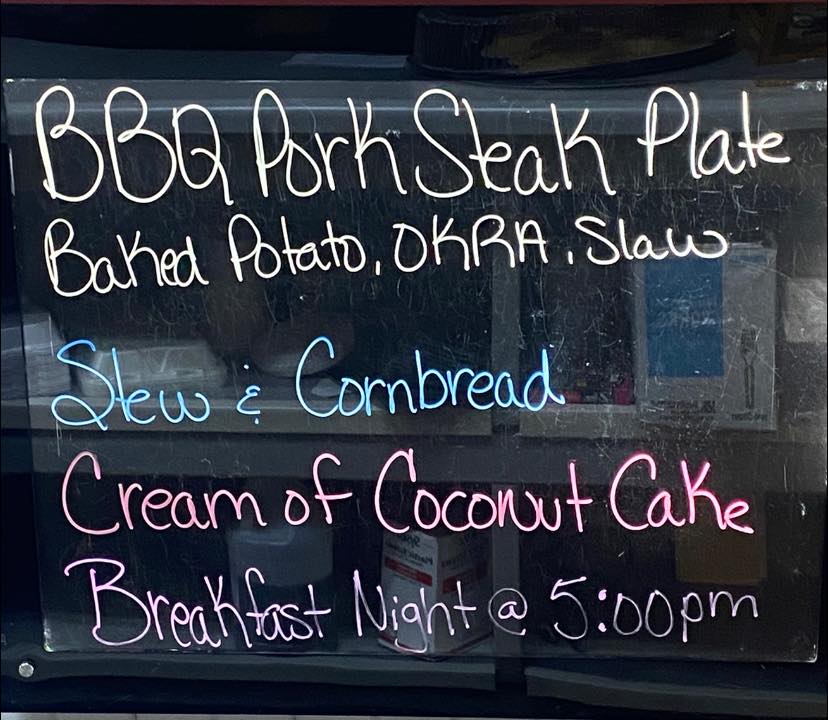 BBQ Pork Steak Plate
Baked Potato, OKRA, Slaw
Stew & Cornbread
Cream of Coconut Cake
Breakfast Night @ 5:00pm